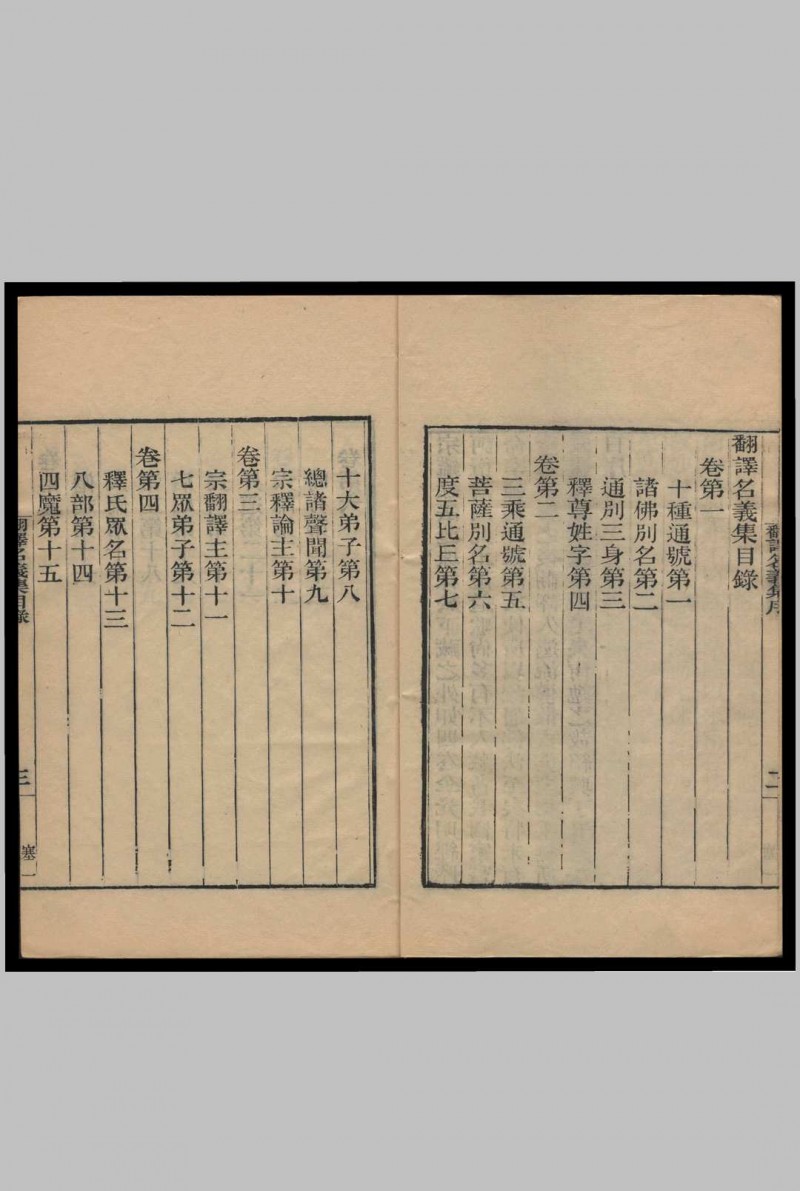 翻譯名義集序
二
翻譯名義集目錄
卷第一
十種通號第一
諸佛別名第二
通別三身第三
釋尊姓字第四
卷第二
三乘通號第五
菩薩別名第六
度五比丘第七
十大弟子第八
總諸聲聞第九
宗釋論主第十
卷第三
宗翻譯主第十一
七眾弟子第十二
卷第四
釋氏眾名第十三
八部第十四
四魔第十五
翻譯名義集目錄
三
塞一